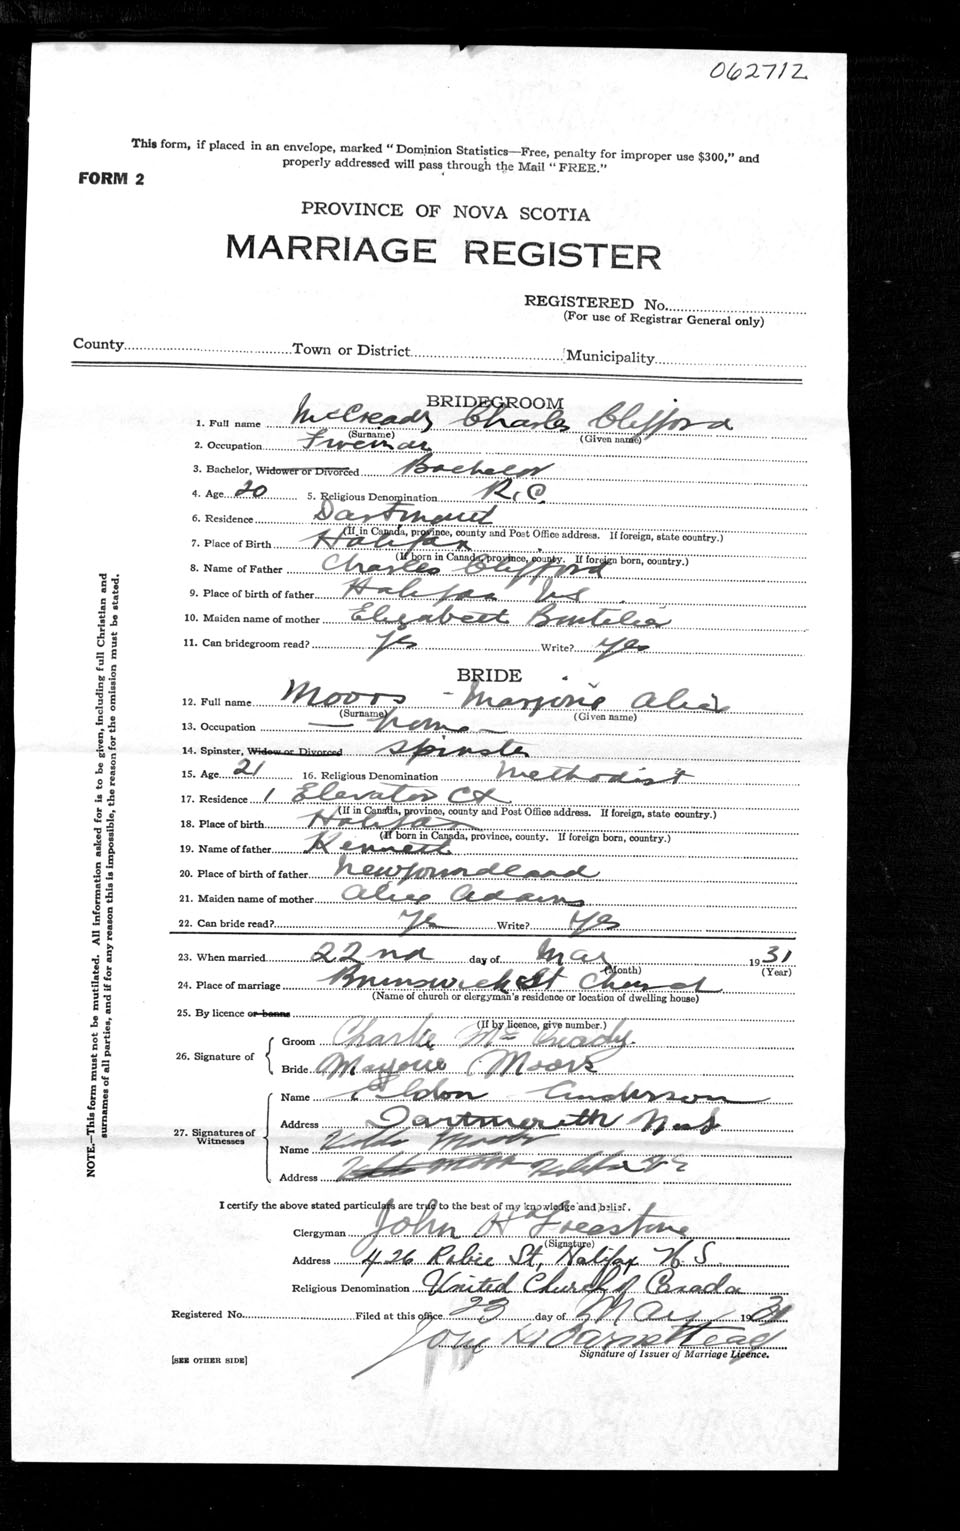 062712
This form, if placed in an envelope, marked "Dominion Statistics—Free, penalty for improper use $300," and
properly addressed will pass through the Mail "FREE."
FORM 2
PROVINCE OF NOVA SCOTIA
MARRIAGE REGISTER
REGISTERED No.
(For use of Registrar General only)
County Town or District Municipality
BRIDEGROOM
1. Full name McCready Charles Clifford
(Surname) (Given name)
2. Occupation
3. Bachelor, Widower or Divorced Bachelor
4. Age 20 5. Religious Denomination R.C.
6. Residence Dartmouth
(If in Canada, province, county and Post Office address. If foreign, state country.)
7. Place of Birth Halifax
(If born in Canada, province, county. If foreign born, country.)
8. Name of Father Charles Clifford
9. Place of birth of father Halifax NS
10. Maiden name of mother Elizabeth
11. Can bridegroom read? Yes Write? Yes
BRIDE
12. Full name Moors - Marjorie Alice
(Surname) (Given name)
13. Occupation — home —
14. Spinster, Widow or Divorced Spinster
15. Age 21 16. Religious Denomination Methodist
17. Residence 1 Elevator Ct
(If in Canada, province, county and Post Office address. If foreign, state country.)
18. Place of birth Halifax
(If born in Canada, province, county. If foreign born, country.)
19. Name of father Kenneth
20. Place of birth of father Newfoundland
21. Maiden name of mother Alice Adams
22. Can bride read? Yes Write? Yes
23. When married 22nd day of Mar 1931
(Month) (Year)
24. Place of marriage Brunswick St Church
(Name of church or clergyman's residence or location of dwelling house)
25. By licence or banns
(If by licence, give number.)
26. Signature of Groom Charlie McCready.
Bride Marjorie Moors
27. Signatures of Witnesses Name Eldon Anderson
Address Dartmouth N.S
Name
Address Halifax
I certify the above stated particulars are true to the best of my knowledge and belief.
Clergyman John H Freestone
(Signature)
Address 426 Robie St, Halifax N.S.
Religious Denomination United Church of Canada
Registered No. Filed at this office 23 day of Mar 1931
John
Signature of Issuer of Marriage Licence.
[SEE OTHER SIDE]
NOTE.—This form must not be mutilated. All information asked for is to be given, including full Christian and
surnames of all parties, and if for any reason this is impossible, the reason for the omission must be stated.